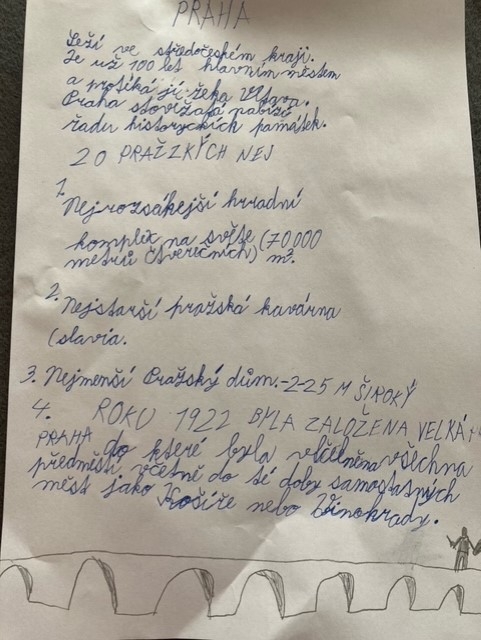 PRAHA
Leží ve středočeském kraji.
Je už 100 let hlavním městem
a protíká jí řeka Vltava.
Praha stověžatá nabízí
řadu historyckích památek.
20 PRAŽZKÝCH NEJ
1. Nejrozsáhejší hradní
komplex na světe (70000
metrů čtverečních) m².
2. Nejstarší pražská kavárna
(slavia.
3. Nejmenší Pražský dům.-2-25 M ŠIROKÝ
4. ROKU 1922 BYLA ZALOŽENA VELKÁ
PRAHA do které byla včleněna všechna
předměstí, včetně do té doby samostatných
měst jako Košíře nebo Vinohrady.